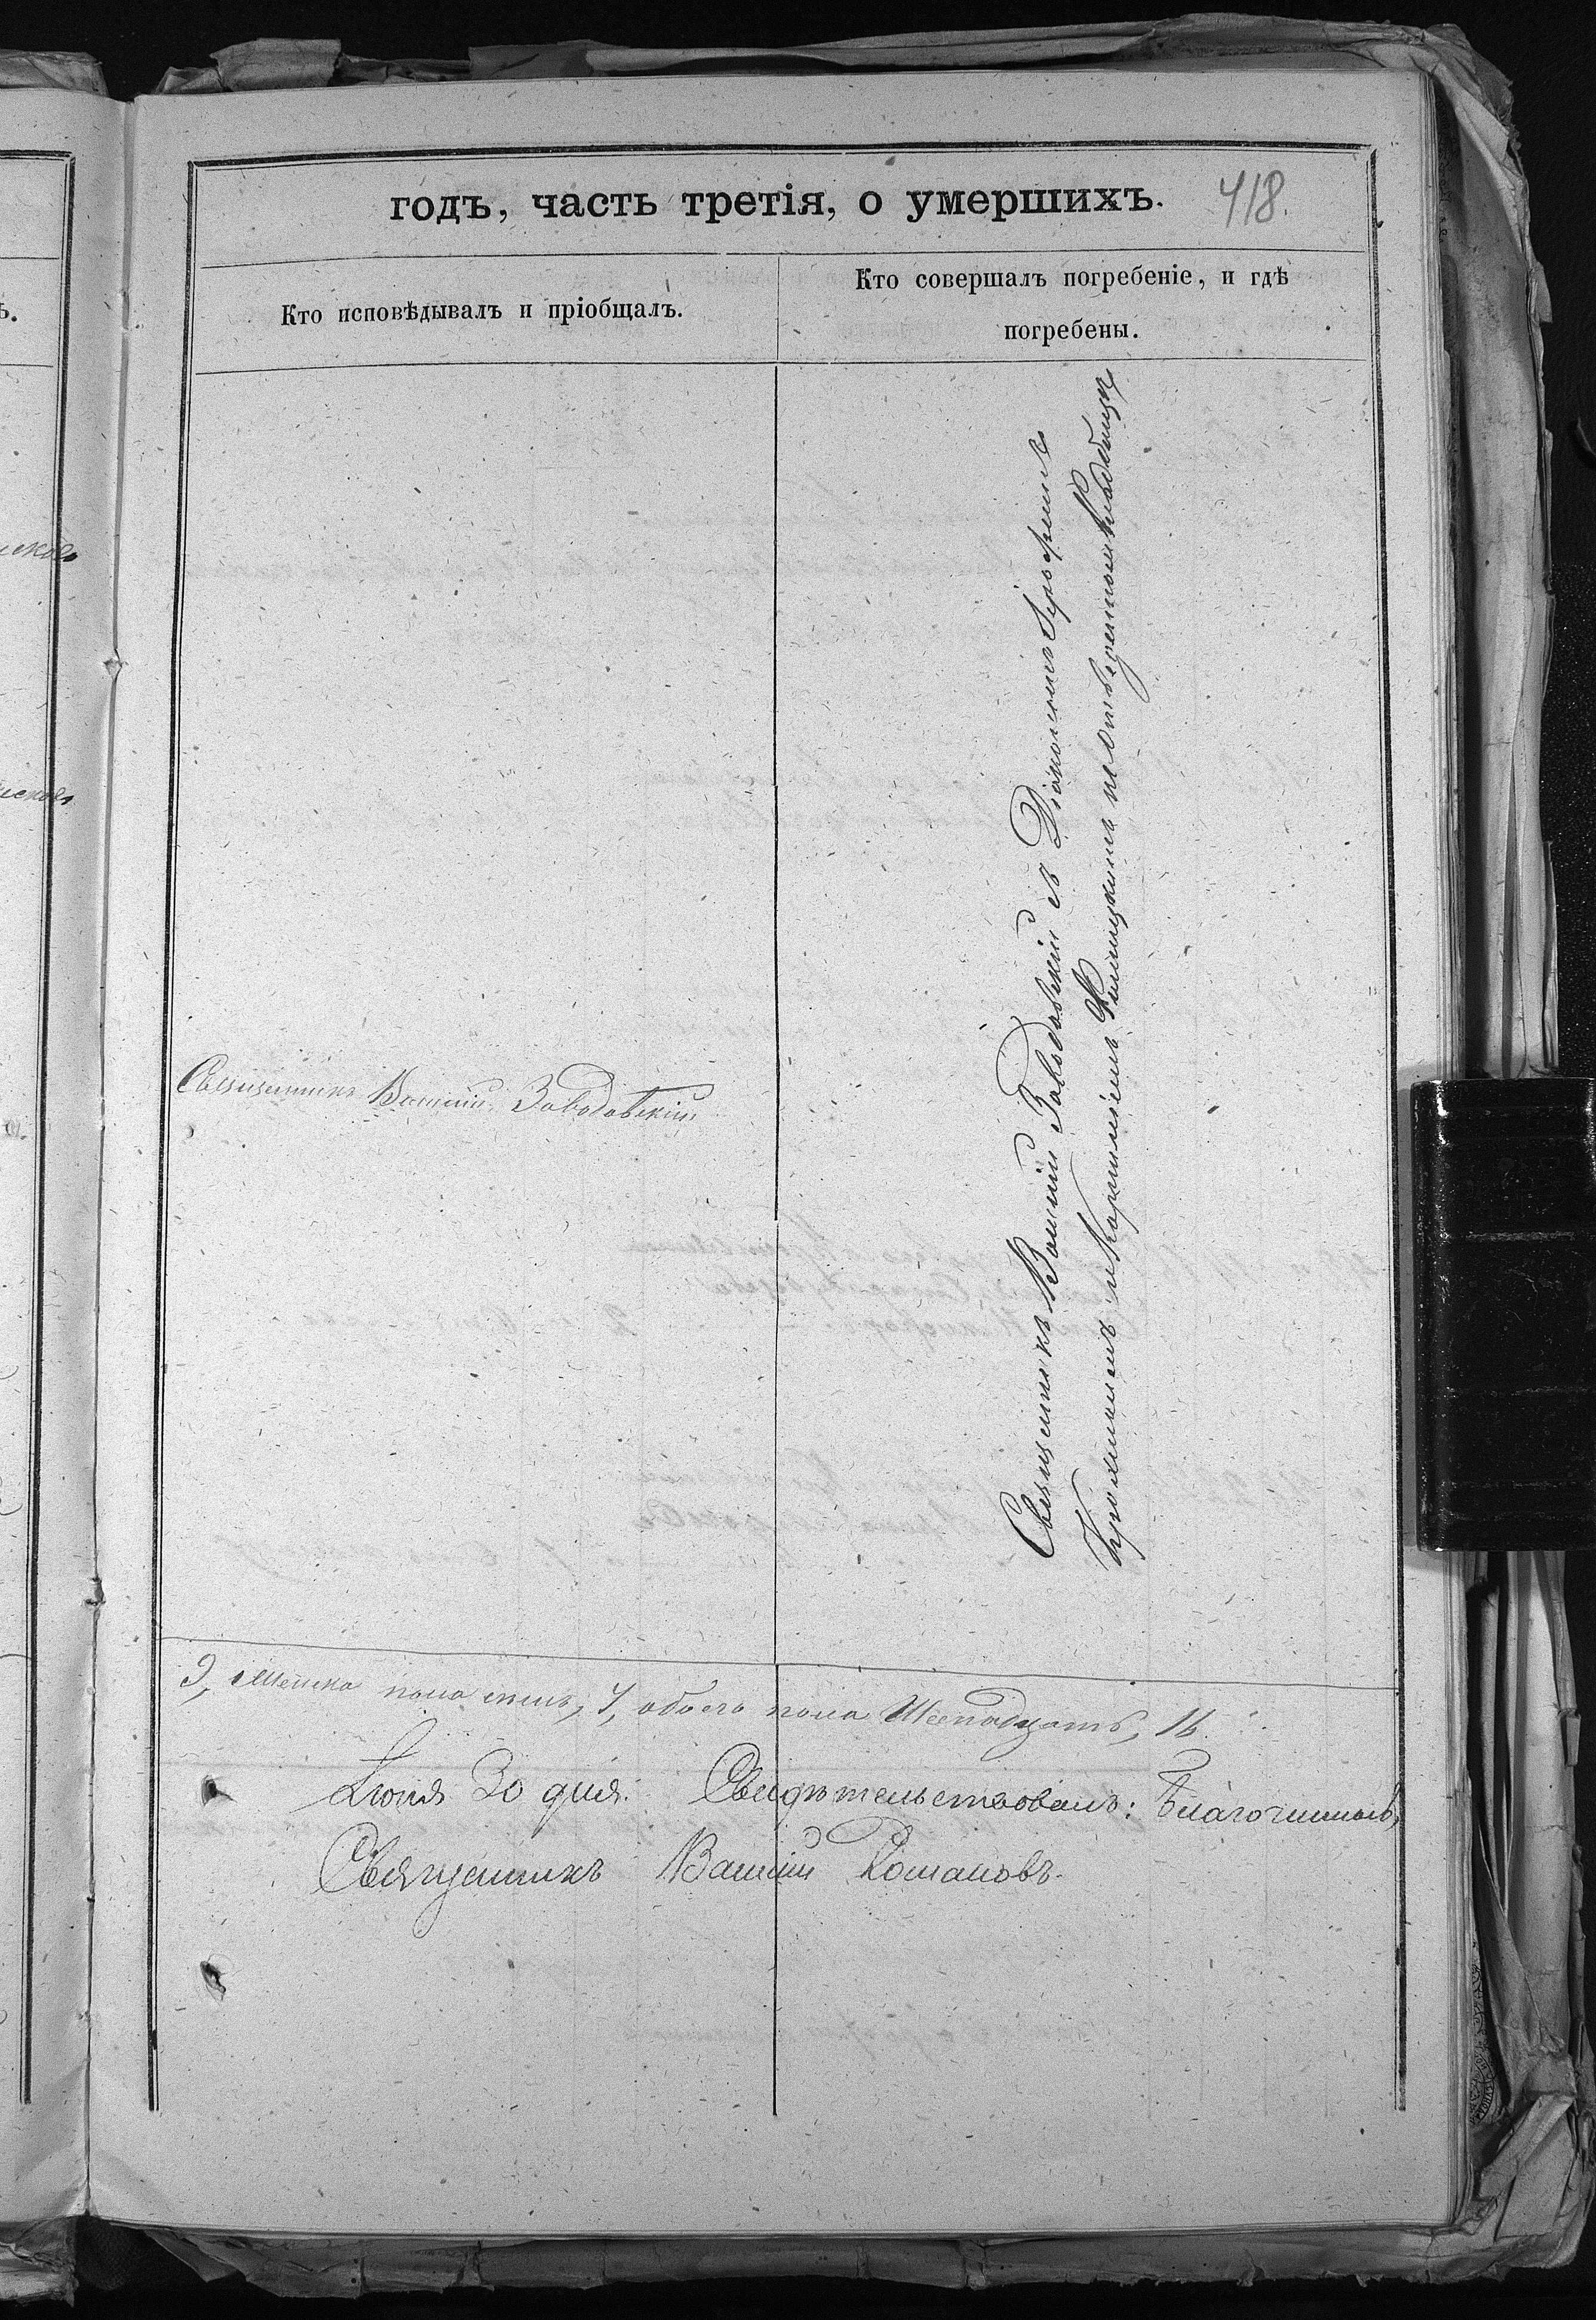 годъ, часть третія, о умершихъ.
418.
Кто исповѣдывалъ и пріобщалъ.
Кто совершалъ погребеніе, и гдѣ
погребены.
Священникъ Василій Заводовскій
Священникъ Василій Заводовскій съ Діакономъ
на отведенномъ кладбищѣ
9, женска пола семь, 7, обоего пола Шестнадцать, 16.
Іюня 30 дня. Свидѣтельствовалъ: Благочинный,
Священникъ Василій Романовъ.